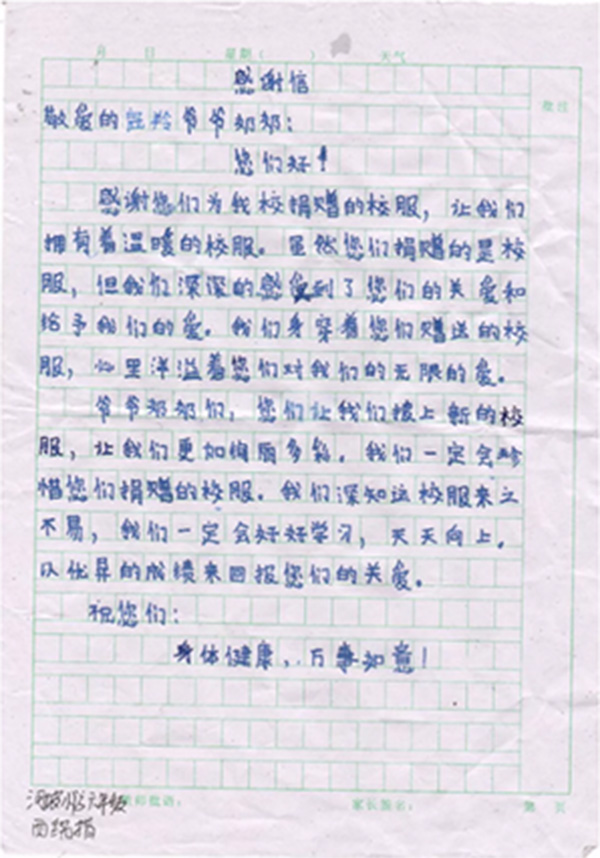 月 日 星期( ) 天气
感谢信
批注
敬爱的 爷爷奶奶:
您们好!
感谢您们为我校捐赠的校服,让我们
拥有着温暖的校服。虽然您们捐赠的是校
服,但我们深深的感受到了您们的关爱和
给予我们的爱。我们身穿着您们赠送的校
服,心里洋溢着您们对我们的无限的爱。
爷爷奶奶们,您们让我们换上新的校
服,让我们更加绚丽多彩。我们一定会珍
惜您们捐赠的校服。我们深知这校服来之
不易,我们一定会好好学习,天天向上。
以优异的成绩来回报您们的关爱。
祝您们:
身体健康,万事如意!
教师批语: 家长签名: 第 页
六年级